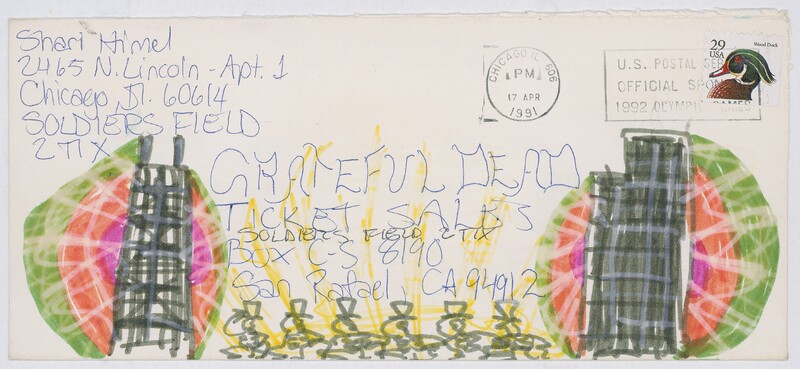 Shari Himel
2465 N. Lincoln - Apt. 1
Chicago, Il. 60614
SOLDIERS FIELD
2 TIX
CHICAGO IL 606
PM
17 APR
1991
U.S. POSTAL SER
OFFICIAL SPON
1992 OLYMPIC GAMES
29
USA
Wood Duck
GRATEFUL DEAD
TICKET SALES
SOLDIERS FIELD, 2 TIX
BOX C-S 8190
San Rafael, CA 94912